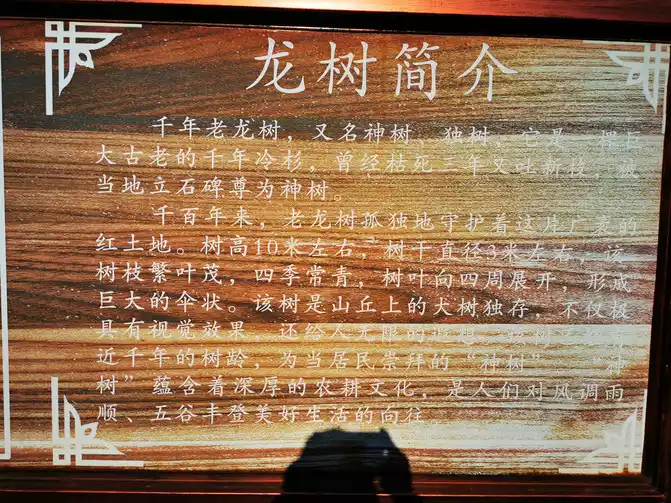 龙树简介
千年老龙树，又名神树、独树，它是一棵巨
大古老的千年冷杉，曾经枯死三年又吐新枝，被
当地立石碑尊为神树。
千百年来，老龙树孤独地守护着这片广袤的
红土地。树高10米左右，树干直径3米左右，该
树枝繁叶茂，四季常青，树叶向四周展开，形成
巨大的伞状。该树是山丘上的大树独存，不仅极
具有视觉效果，还给人无限的
近千年的树龄，为当居民崇拜的“神树” 神
树”蕴含着深厚的农耕文化，是人们对风调雨
顺、五谷丰登美好生活的向往